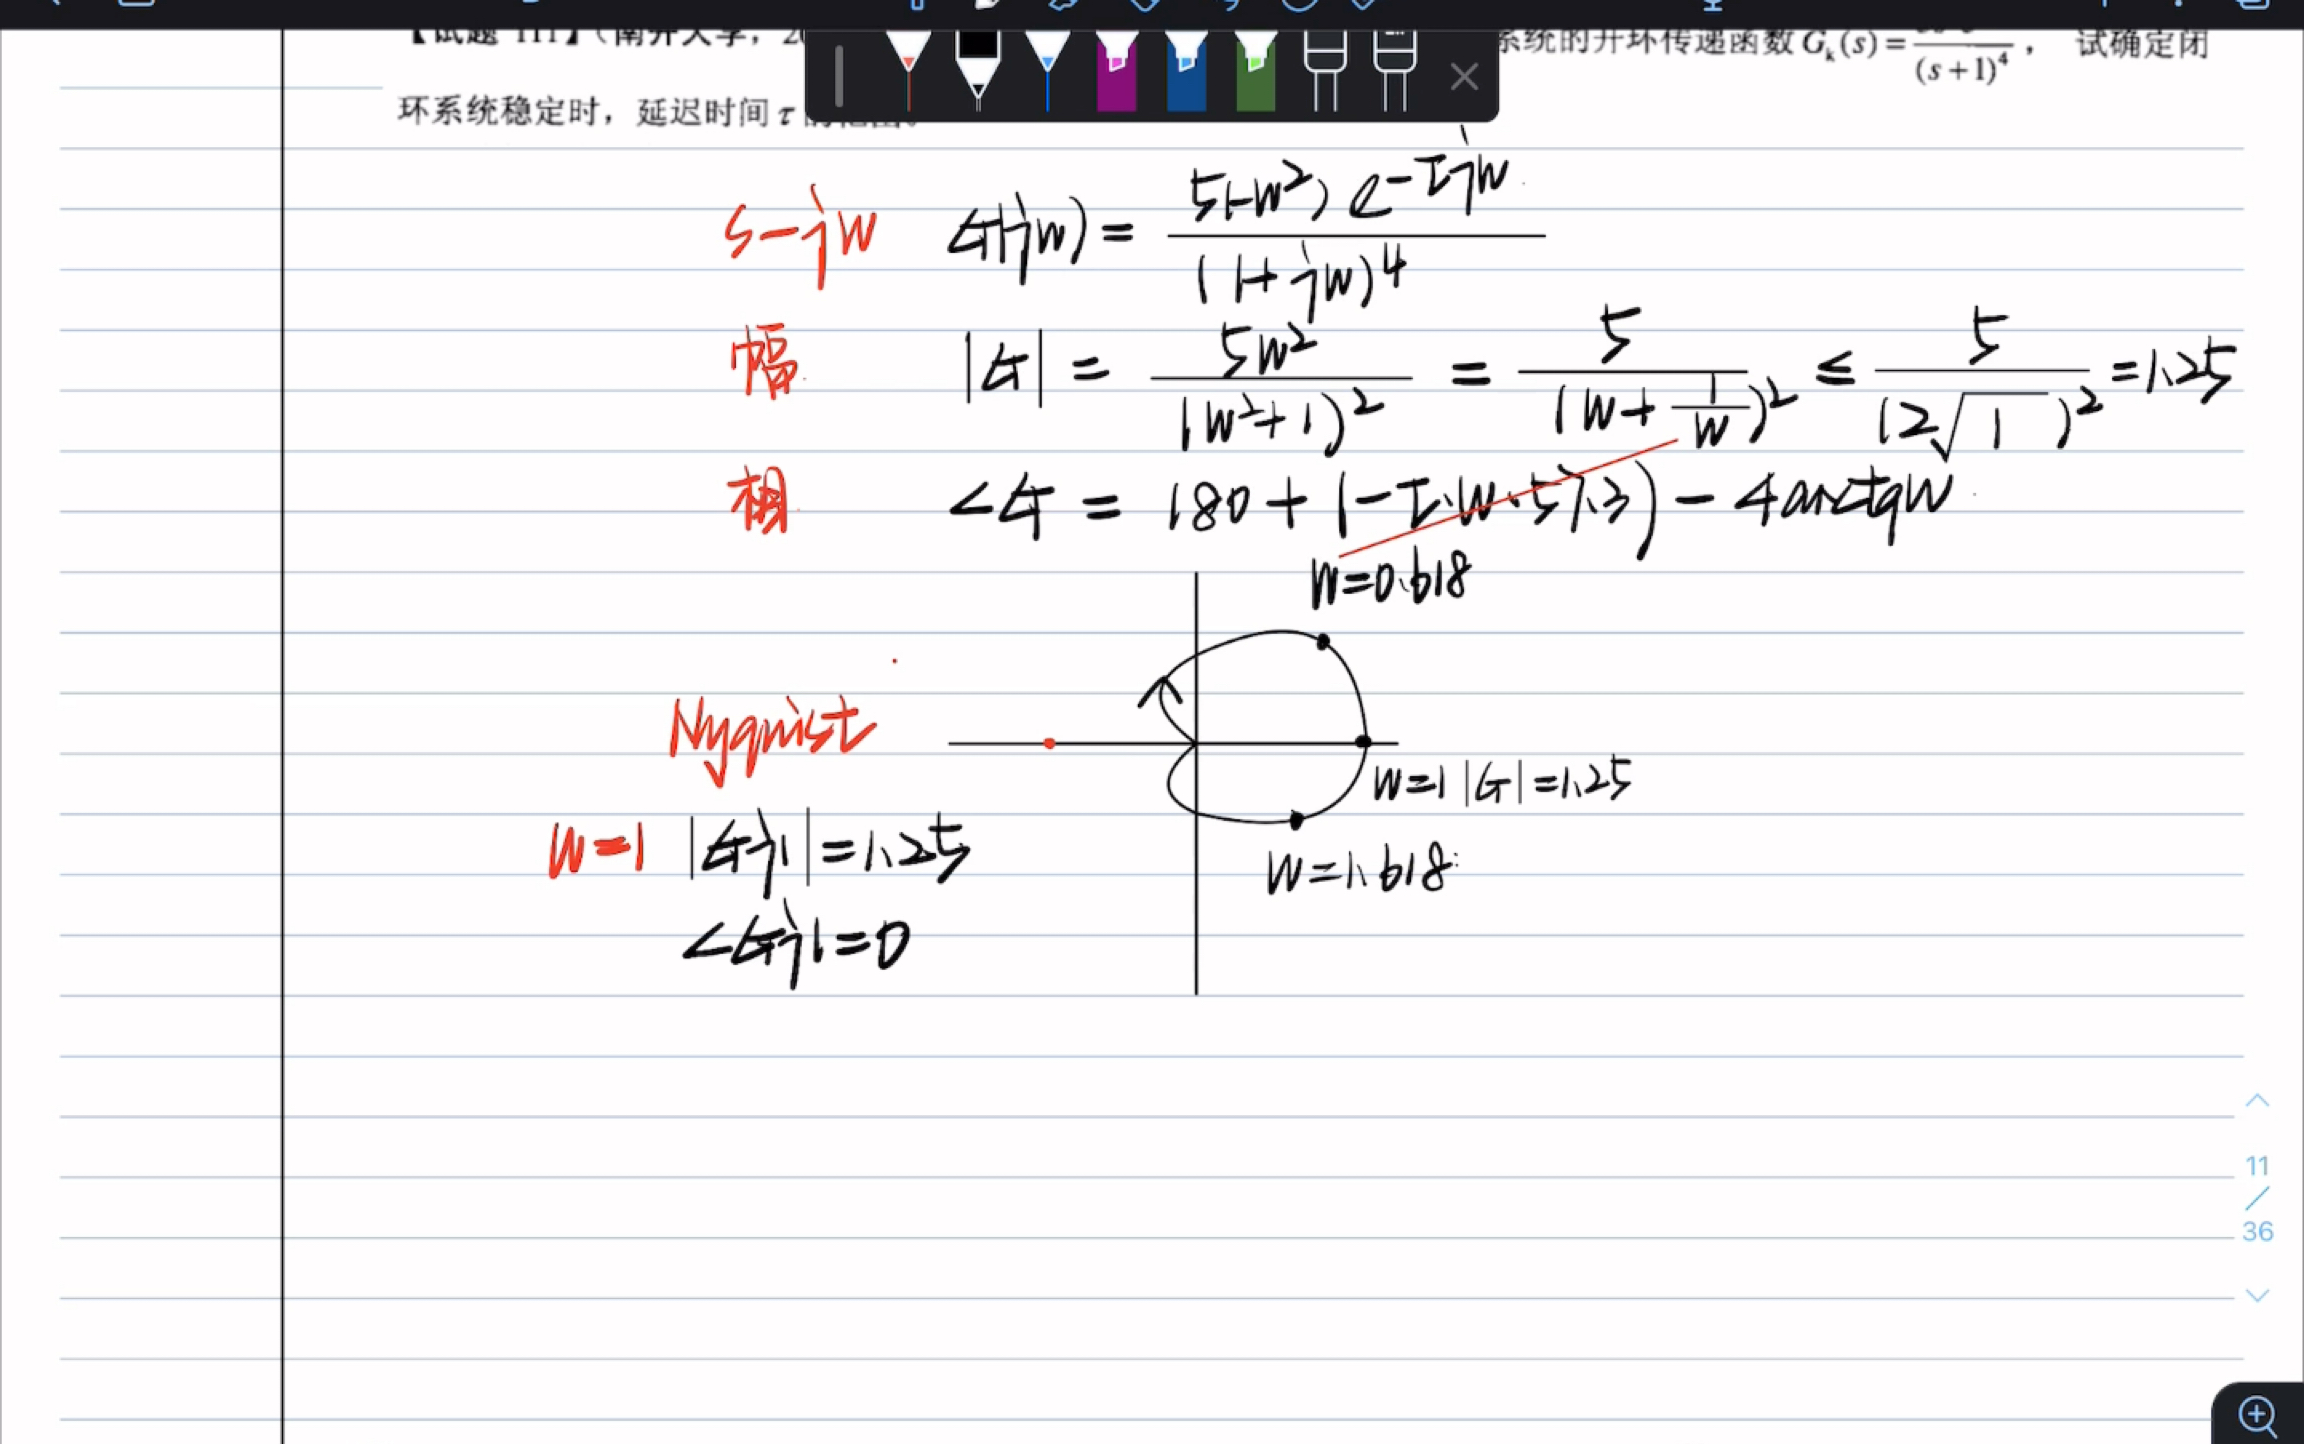 【试题 111】（南开大学，2 系统的开环传递函数 Gₖ(s)= /(s+1)⁴， 试确定闭
环系统稳定时，延迟时间 τ 的范围。
s-jw G(jw) = 5(-w²) e^-τjw / (1+jw)⁴
幅 |G| = 5w² / (w²+1)² = 5 / (w + 1/w)² ≤ 5 / (2√1)² = 1.25
相 <G = 180 + (-τ·w·57.3) - 4arctgw
w=0.618
Nyquist
w=1 |G|=1.25
w=1 |Gj1| = 1.25
w=1.618
<Gj1=0
11
/
36